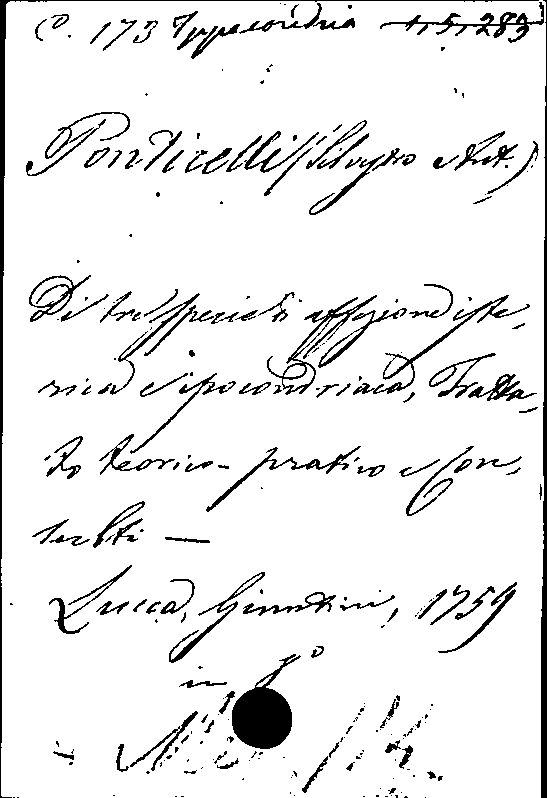 C. 173 Ippocondria 4, 5, 283
Ponticelli (Silvestro Ant.)
Di tre specie di affezione iste-
rica e ipocondriaca, Tratta-
to teorico-pratico e Con-
sulti —
Lucca, Giuntini, 1759
in 8º